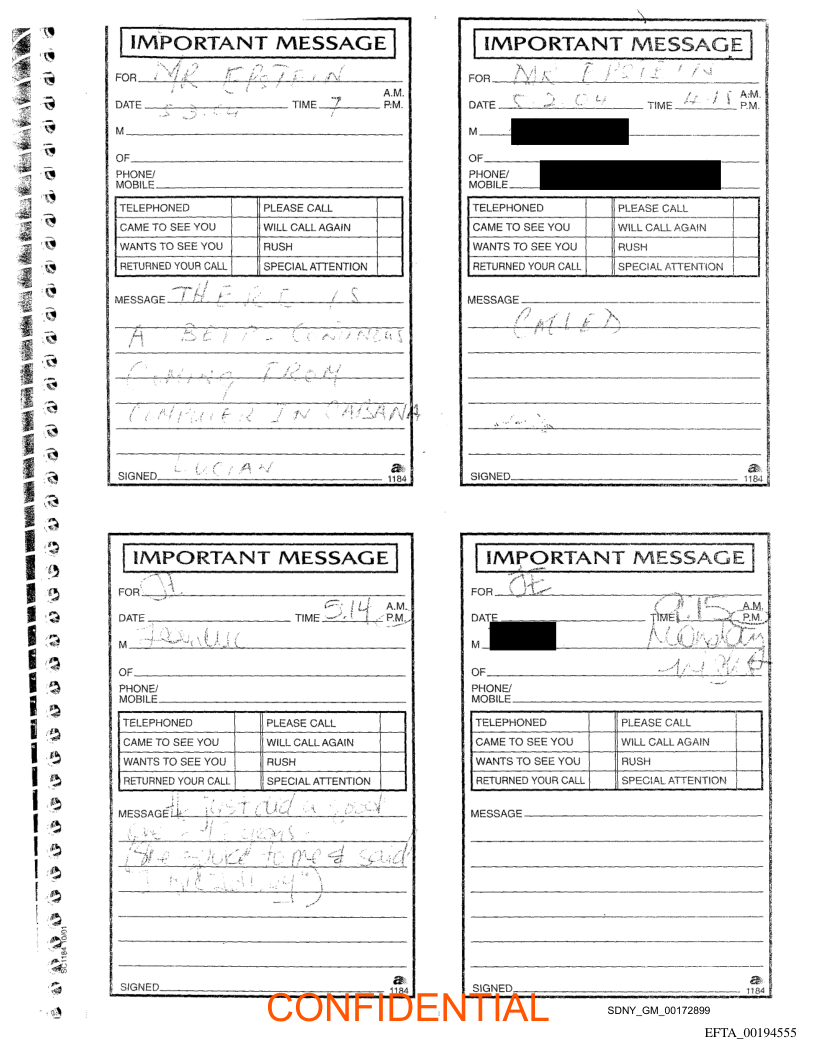 IMPORTANT MESSAGE
FOR MR EPSTEIN
A.M.
DATE 5 3.04 TIME 7 P.M.
M
OF
PHONE/
MOBILE
TELEPHONED PLEASE CALL
CAME TO SEE YOU WILL CALL AGAIN
WANTS TO SEE YOU RUSH
RETURNED YOUR CALL SPECIAL ATTENTION
MESSAGE THERE IS
A BEEP-
COMING FROM
COMPUTER IN CABANA
SIGNED LUCIAN
a
1184
IMPORTANT MESSAGE
FOR MR EPSTEIN
A.M.
DATE 5.2.04 TIME 4.15 P.M.
M
OF
PHONE/
MOBILE
TELEPHONED PLEASE CALL
CAME TO SEE YOU WILL CALL AGAIN
WANTS TO SEE YOU RUSH
RETURNED YOUR CALL SPECIAL ATTENTION
MESSAGE
CALLED
SIGNED
a
1184
IMPORTANT MESSAGE
FOR
A.M.
DATE TIME 5.14 P.M.
M
OF
PHONE/
MOBILE
TELEPHONED PLEASE CALL
CAME TO SEE YOU WILL CALL AGAIN
WANTS TO SEE YOU RUSH
RETURNED YOUR CALL SPECIAL ATTENTION
MESSAGE just did a good
years
spoke to me & said
SIGNED
a
1184
IMPORTANT MESSAGE
FOR JE
A.M.
DATE TIME 9.15 P.M.
M Monday
OF night
PHONE/
MOBILE
TELEPHONED PLEASE CALL
CAME TO SEE YOU WILL CALL AGAIN
WANTS TO SEE YOU RUSH
RETURNED YOUR CALL SPECIAL ATTENTION
MESSAGE
SIGNED
a
1184
SC1184 10/01
CONFIDENTIAL
SDNY_GM_00172899
EFTA_00194555